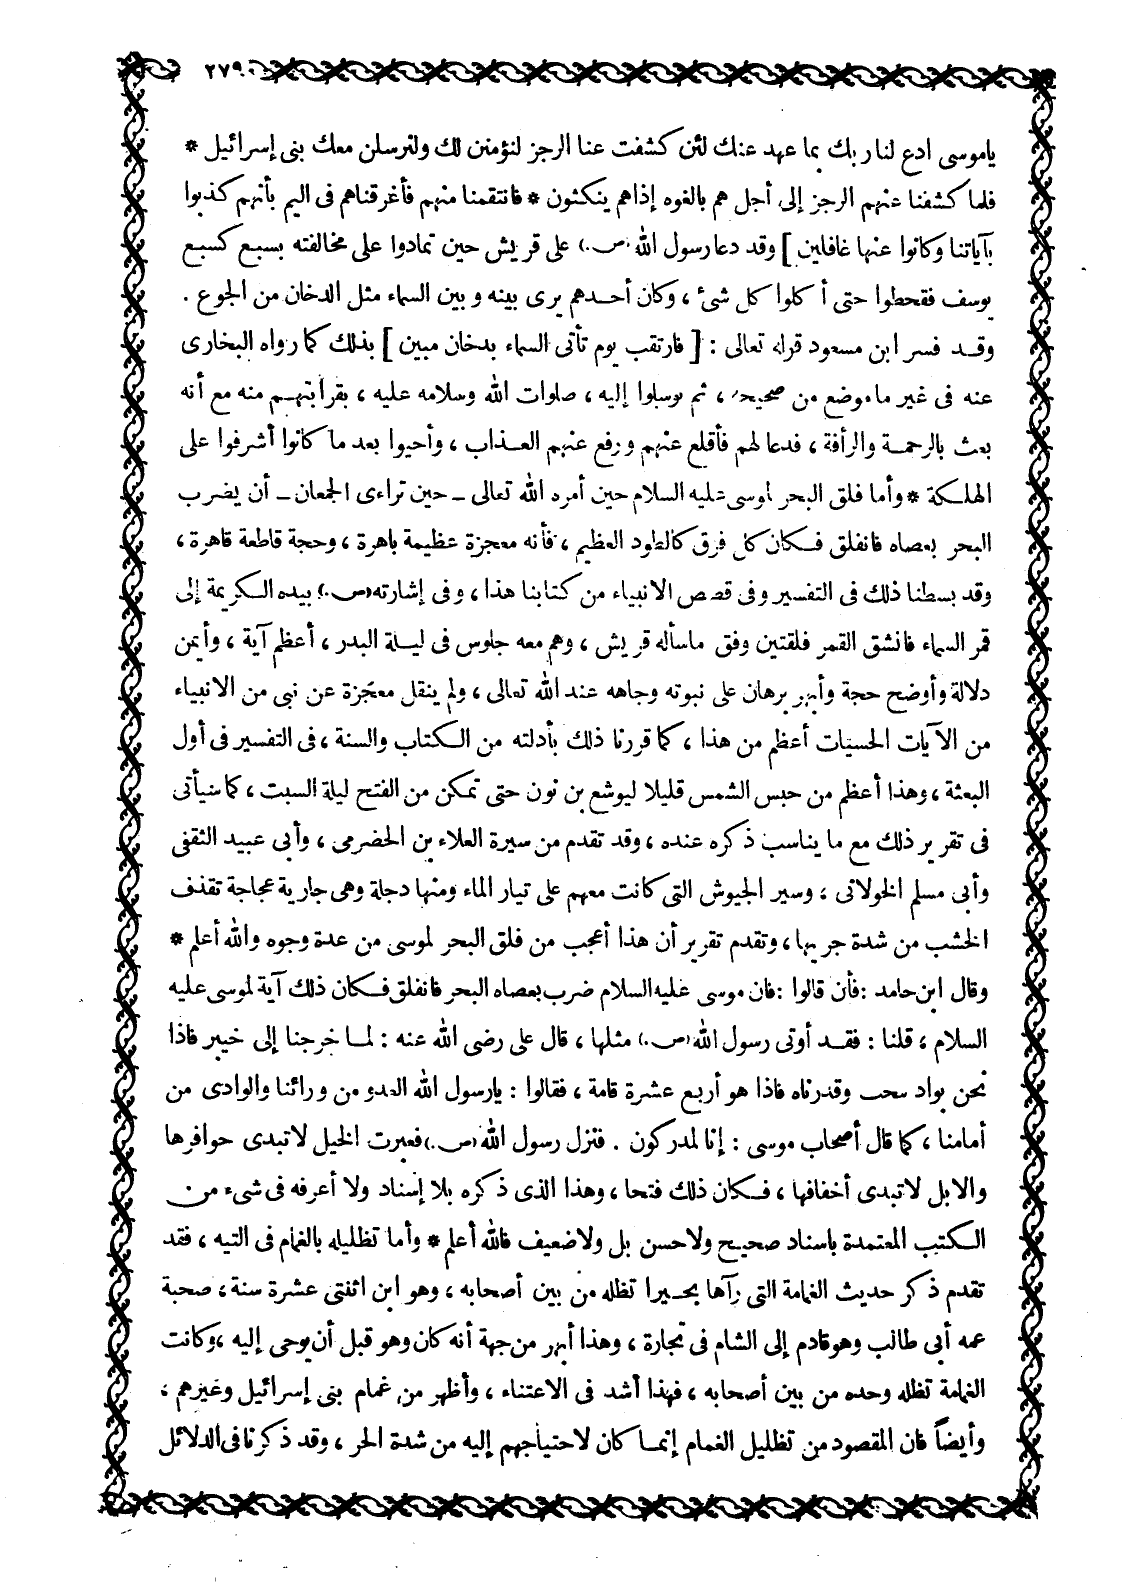 ٢٧٩
ياموسى ادع لنا ربك بما عهد عندك لئن كشفت عنا الرجز لنؤمنن لك ولنرسلن معك بنى إسرائيل *
فلما كشفنا عنهم الرجز إلى أجل هم بالغوه إذاهم ينكثون * فانتقمنا منهم فأغرقناهم فى اليم بأنهم كذبوا
بآياتنا وكانوا عنها غافلين ] وقد دعا رسول الله (ص.) على قريش حين تمادوا على مخالفته بسبع كسبع
يوسف فقحطوا حتى أكلوا كل شئ ، وكان أحدهم يرى بينه وبين السماء مثل الدخان من الجوع .
وقد فسر ابن مسعود قوله تعالى : [ فارتقب يوم تأتى السماء بدخان مبين ] بذلك كما رواه البخارى
عنه فى غير ما موضع من صحيحه ، ثم توسلوا إليه ، صلوات الله وسلامه عليه ، بقرابتهم منه مع أنه
بعث بالرحمة والرأفة ، فدعا لهم فأقلع عنهم ورفع عنهم العذاب ، وأحيوا بعد ما كانوا أشرفوا على
الهلكة * وأما فلق البحر لموسى عليه السلام حين أمره الله تعالى ــ حين تراءى الجمعان ــ أن يضرب
البحر بعصاه فانفلق فكان كل فرق كالطود العظيم ، فأنه معجزة عظيمة باهرة ، وحجة قاطعة قاهرة ،
وقد بسطنا ذلك فى التفسير وفى قصص الانبياء من كتابنا هذا ، وفى إشارته (ص.) بيده الكريمة إلى
قمر السماء فانشق القمر فلقتين وفق ماسأله قريش ، وهم معه جلوس فى ليلة البدر ، أعظم آية ، وأيمن
دلالة وأوضح حجة وأبهر برهان على نبوته وجاهه عند الله تعالى ، ولم ينقل معجزة عن نبى من الانبياء
من الآيات الحسيات أعظم من هذا ، كما قررنا ذلك بأدلته من الكتاب والسنة ، فى التفسير فى أول
البعثة ، وهذا أعظم من حبس الشمس قليلا ليوشع بن نون حتى تمكن من الفتح ليلة السبت ، كما سيأتى
فى تقرير ذلك مع ما يناسب ذكره عنده ، وقد تقدم من سيرة العلاء بن الحضرمى ، وأبى عبيد الثقفى
وأبى مسلم الخولانى ، وسير الجيوش التى كانت معهم على تيار الماء ومنها دجلة وهى جارية عجاجة تقذف
الخشب من شدة جريها ، وتقدم تقرير أن هذا أعجب من فلق البحر لموسى من عدة وجوه والله أعلم *
وقال ابن حامد : فأن قالوا : فان موسى عليه السلام ضرب بعصاه البحر فانفلق فكان ذلك آية لموسى عليه
السلام ، قلنا : فقد أوتى رسول الله (ص.) مثلها ، قال على رضى الله عنه : لما خرجنا إلى خيبر فاذا
نحن بواد سحب وقدرناه فاذا هو أربع عشرة قامة ، فقالوا : يارسول الله العدو من ورائنا والوادى من
أمامنا ، كما قال أصحاب موسى : إنا لمدركون . فنزل رسول الله (ص.) فعبرت الخيل لاتبدى حوافرها
والابل لاتبدى أخفافها ، فكان ذلك فتحا ، وهذا الذى ذكره بلا إسناد ولا أعرفه فى شىء من
الكتب المعتمدة باسناد صحيح ولا حسن بل ولا ضعيف فالله أعلم * وأما تظليله بالغمام فى التيه ، فقد
تقدم ذكر حديث الغمامة التى رآها بحيرا تظله من بين أصحابه ، وهو ابن اثنتى عشرة سنة ، صحبة
عمه أبى طالب وهو قادم إلى الشام فى تجارة ، وهذا أبهر من جهة أنه كان وهو قبل أن يوحى إليه ، وكانت
الغمامة تظله وحده من بين أصحابه ، فهذا أشد فى الاعتناء ، وأظهر من غمام بنى إسرائيل وغيرهم ،
وأيضاً فان المقصود من تظليل الغمام إنما كان لاحتياجهم إليه من شدة الحر ، وقد ذكرنا فى الدلائل